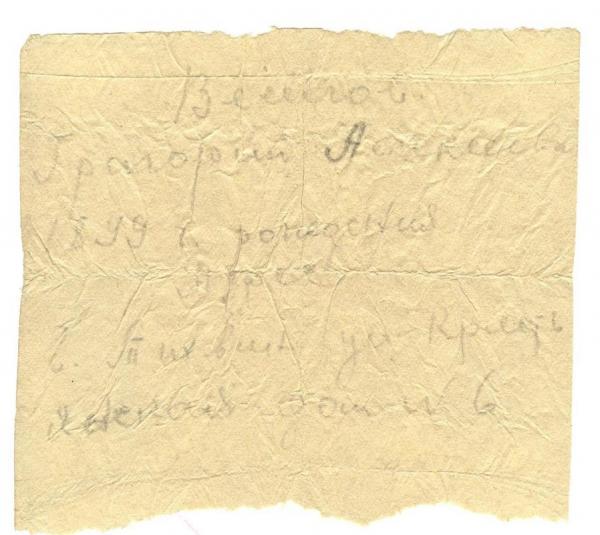 Григорий Алексееви
1899 г. рождения
Адрес
г. Тихвин ул-Кресть
янская дом № 6